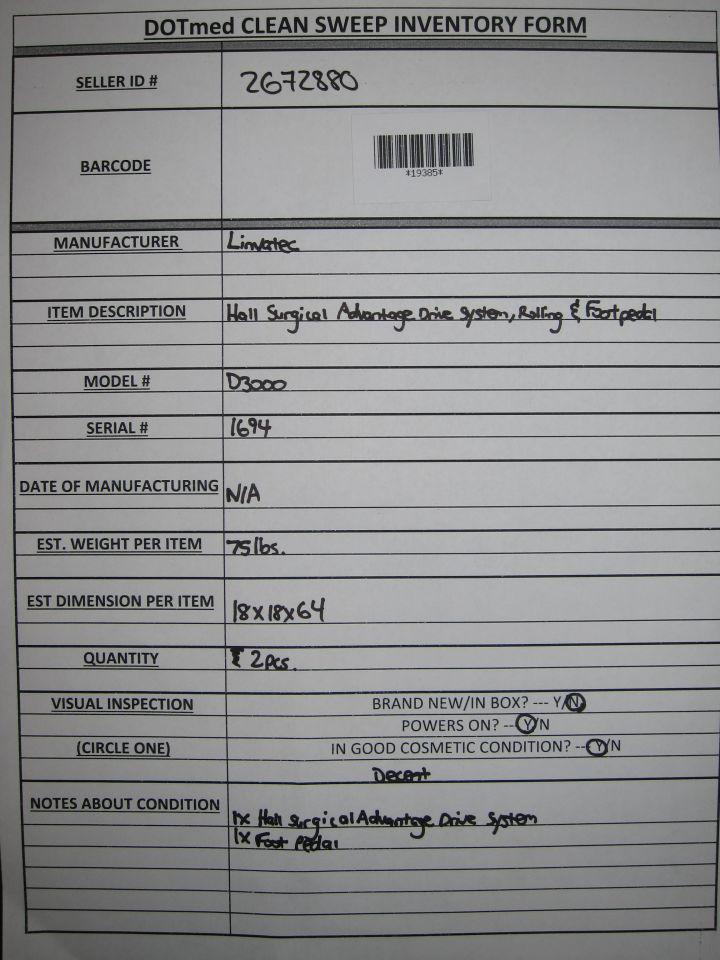 DOTmed CLEAN SWEEP INVENTORY FORM
SELLER ID # 2672880
BARCODE
*19385*
MANUFACTURER Linvatec
ITEM DESCRIPTION Hall Surgical Advantage Drive System, Rolling & Footpedal
MODEL # D3000
SERIAL # 1694
DATE OF MANUFACTURING N/A
EST. WEIGHT PER ITEM 75 lbs.
EST DIMENSION PER ITEM 18x18x64
QUANTITY 2pcs.
VISUAL INSPECTION BRAND NEW/IN BOX? --- Y/N
POWERS ON? --Y/N
(CIRCLE ONE) IN GOOD COSMETIC CONDITION? --Y/N
Decent
NOTES ABOUT CONDITION
1x Hall Surgical Advantage Drive System
1x Foot Pedal